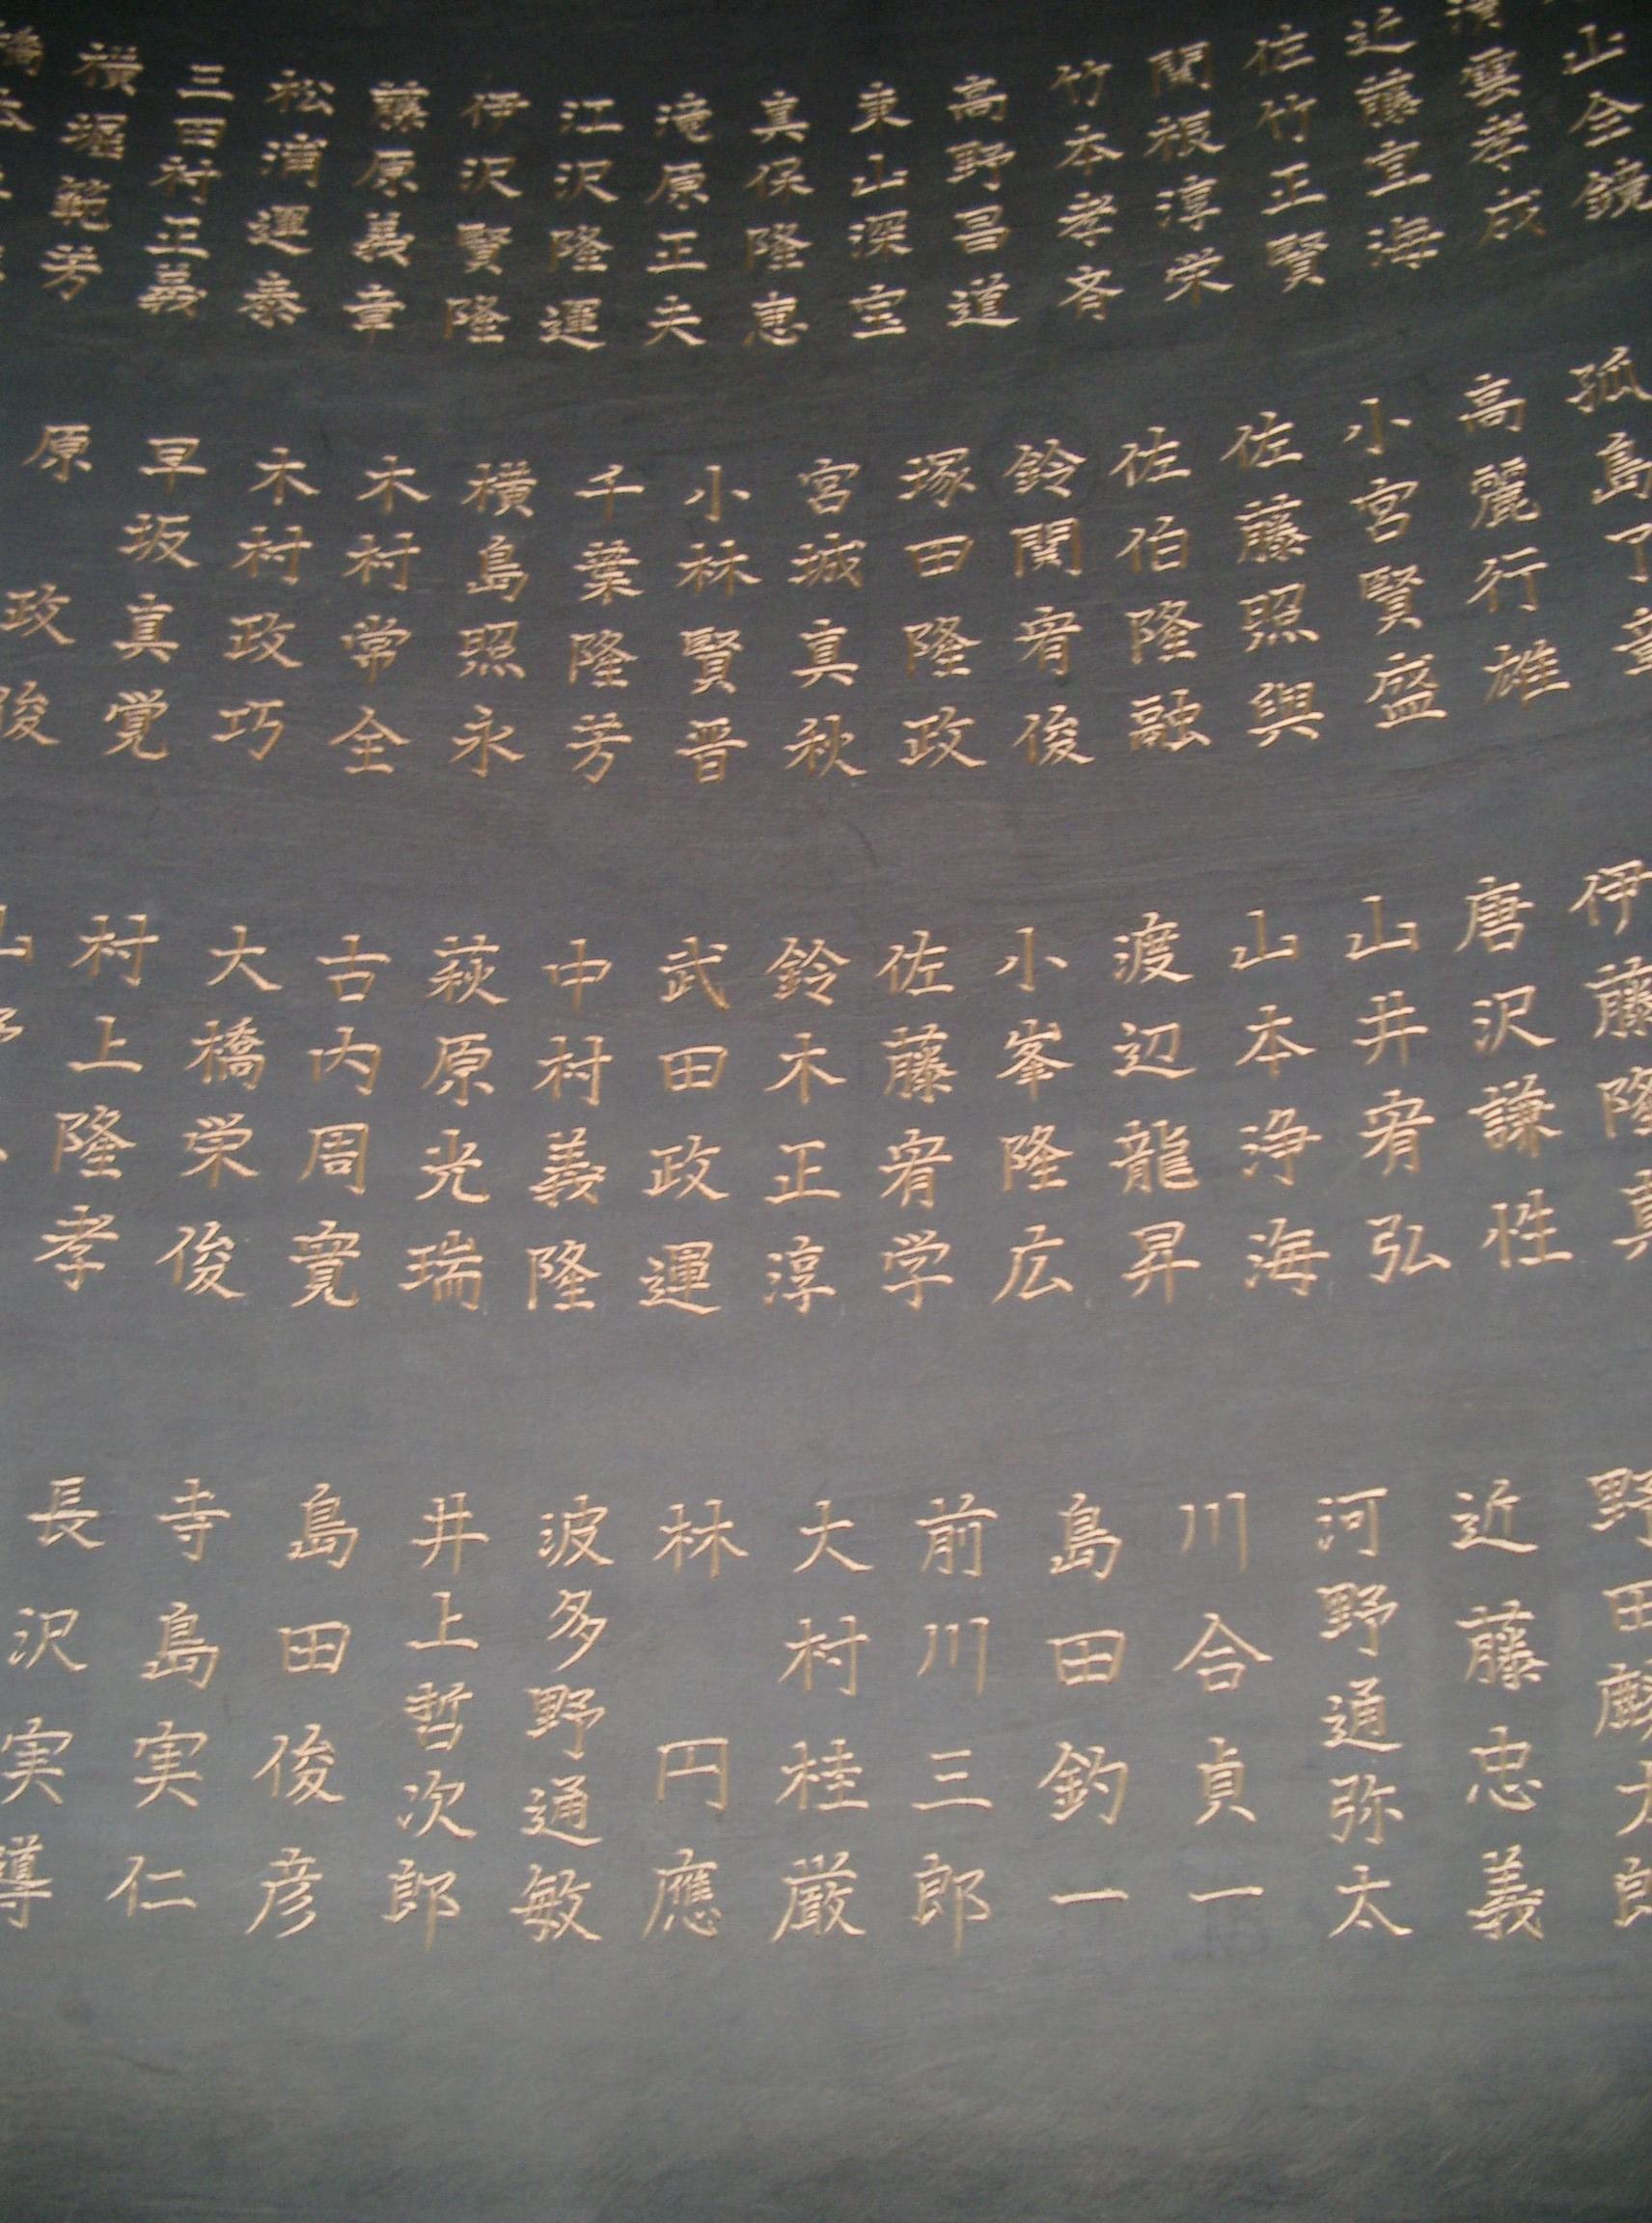 近藤宣海
佐竹正賢
関根淳栄
竹本孝斉
高野昌道
東山深宝
真保隆恵
滝原正夫
江沢隆運
伊沢賢隆
藤原義章
松浦運泰
三田村正義
横堀範芳
高麗行雄
小宮賢盛
佐藤照與
佐伯隆融
鈴関宥俊
塚田隆政
宮城真秋
小林賢晋
千葉隆芳
横島照永
木村常全
木村政巧
早坂真覚
原政俊
伊藤隆真
唐沢謙性
山井宥弘
山本浄海
渡辺龍昇
小峯隆広
佐藤宥学
鈴木正淳
武田政運
中村義隆
萩原光瑞
古内周寛
大橋栄俊
村上隆孝
近藤忠義
河野通弥太
川合貞一
島田釣一
前川三郎
大村桂厳
林円應
波多野通敏
井上哲次郎
島田俊彦
寺島実仁
長沢実導